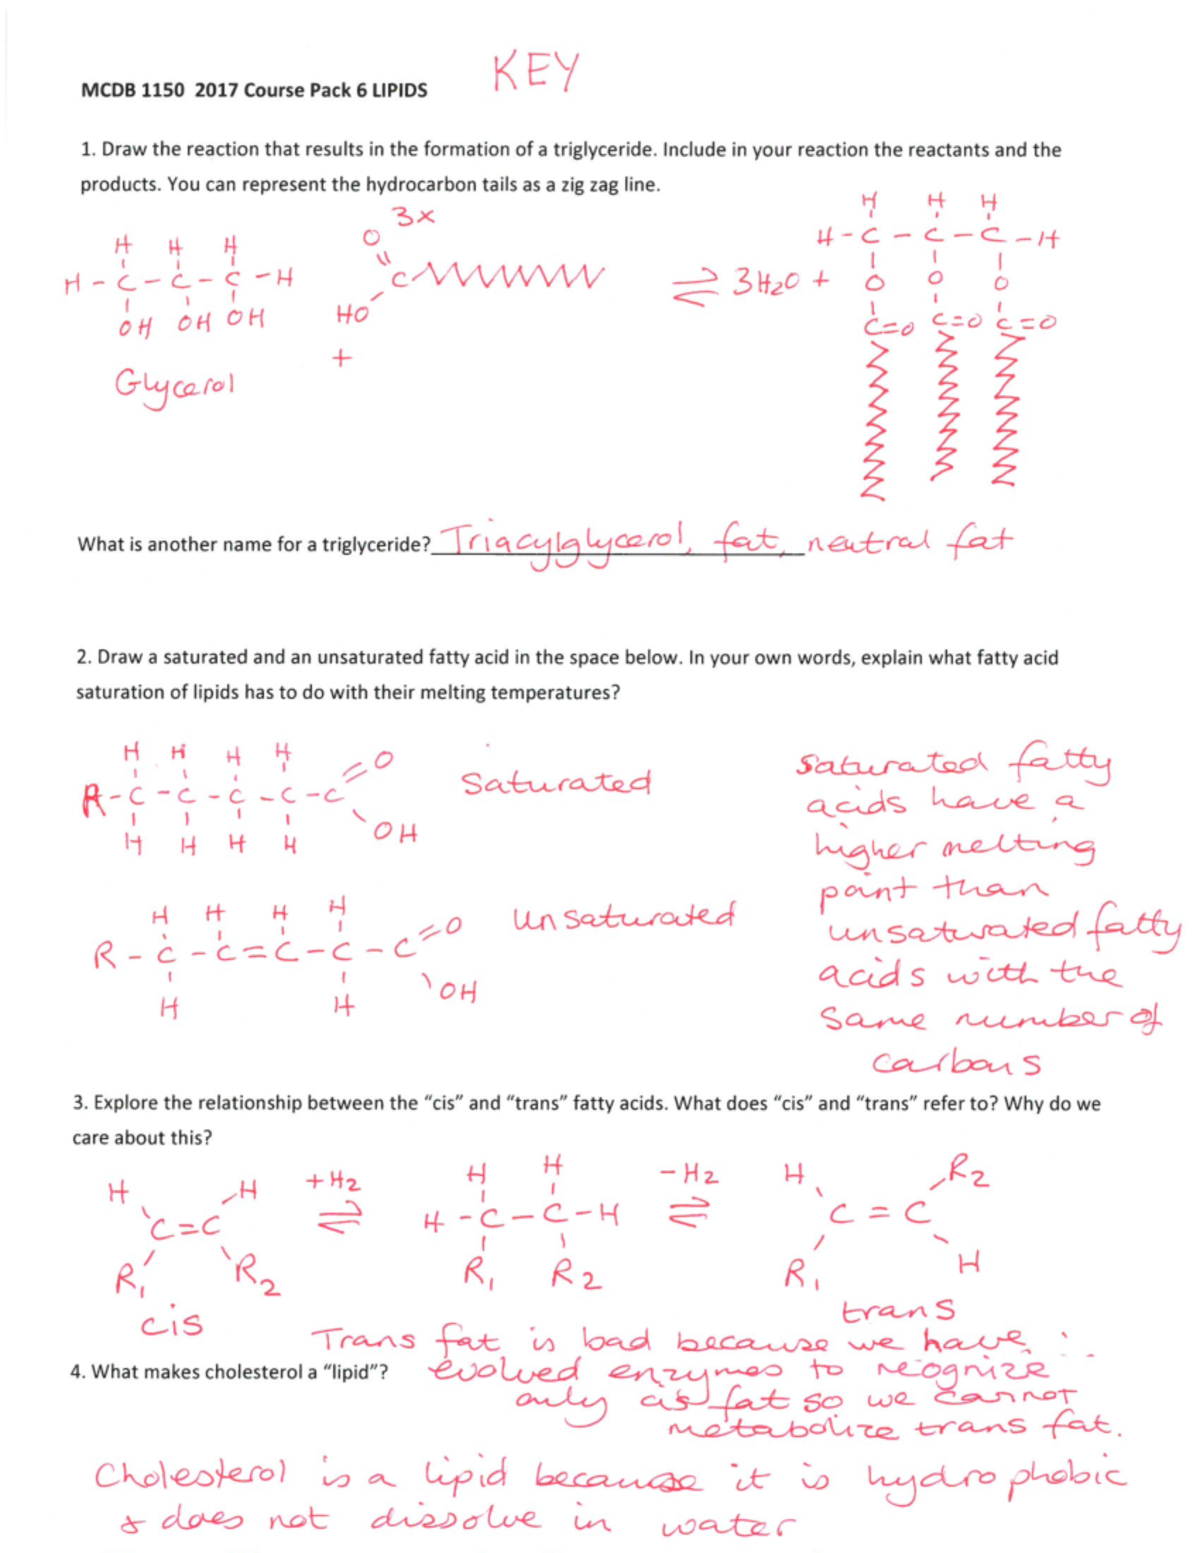 KEY
MCDB 1150 2017 Course Pack 6 LIPIDS
1. Draw the reaction that results in the formation of a triglyceride. Include in your reaction the reactants and the
products. You can represent the hydrocarbon tails as a zig zag line.
3x
H H H
H H H
O
H-C-C-C-H
H-C-C-C-H
C
⇌ 3H2O +
O O O
OH OH OH
HO
C=O C=O C=O
+
Glycerol
What is another name for a triglyceride? Triacylglycerol, fat, neutral fat
2. Draw a saturated and an unsaturated fatty acid in the space below. In your own words, explain what fatty acid
saturation of lipids has to do with their melting temperatures?
H H H H
=O
R-C-C-C-C-C
OH
H H H H
Saturated
H H H H
R-C-C=C-C-C=O
OH
H H
Unsaturated
Saturated fatty
acids have a
higher melting
point than
unsaturated fatty
acids with the
same number of
carbons
3. Explore the relationship between the "cis" and "trans" fatty acids. What does "cis" and "trans" refer to? Why do we
care about this?
H H
+H2
H H
-H2
H R2
C=C
⇌
H-C-C-H
⇌
C=C
R1 R2
R1 R2
R1 H
cis
trans
Trans fat is bad because we have
4. What makes cholesterol a "lipid"?
evolved enzymes to recognize
only cis fat so we cannot
metabolize trans fat.
Cholesterol is a lipid because it is hydrophobic
& does not dissolve in water